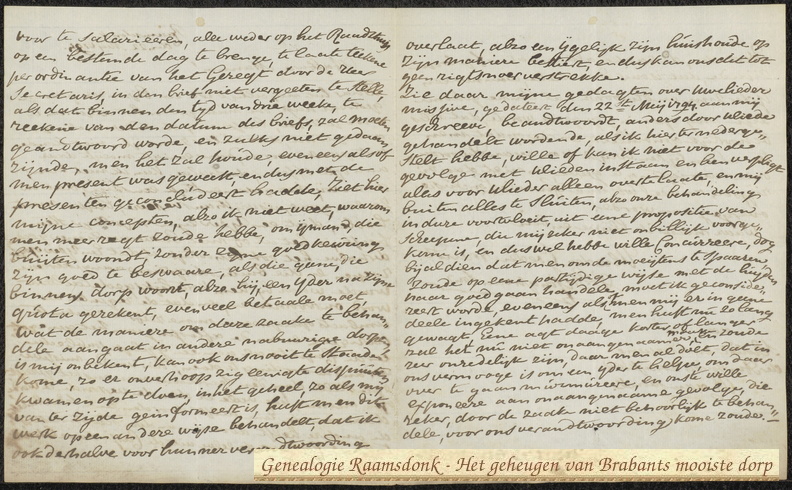 voor te salarieeren, alle weder op het Raedthuijs
op een bestemde dag te brenge, te laate teekene
per ordinantie van het geregt door de Heer
Secretaris, in den brief niet vergeeten te stelle
als dat binnen den tyd van drie weeke, te
reekene van den datum des briefs, zal moeten
geandtwoord worde, en zulks niet gedaan
zijnde, men het zal houde, eveneens alsof
men present was geweest, en dus met de
presenten geconcludeert hadde, siet hier
mijne concepten, alzo ik niet weet, waarom
men meer regt zoude hebbe, om ijmand, die
buiten woondt, zonder eijgne goedkeuring
zijn goed te beswaare, als die gene, die
binnen 's dorp woont, alzo hij een ijder na zijne
quota gerekent, even veel betaale moet,
wat de maniere om daze zaake te behan„
dele aangaat in andere nabuurige dorpen
is mij onbekent, kan ook ons nooit te stade
kome, zo er onverhoopt zig eenigte disputen
kwamen op te doen, in het geheel, zo als mij
van ter zijde geinformeert is, heeft men dit
werk op een andere wijse behandelt, dat ik
ook derhalve voor hunner verandtwoording
overlaat, alzo een ijgelijk zijn huishoude op
zijn maniere bestiert, en dus kan ons dit tot
geen rigtsnoer verstrekke.
Zie daar mijne gedagten over Uwlieder
missive, gedateert den 22te Meij 1794 aan mij
geschreeve, beandtwoordt, anders door Ulieden
gehandelt wordende, als ik hier ter neder ge„
stelt hebbe, wille of kan ik niet voor de
gevolge met Ulieden instaan en ben verpligt
alles voor Ulieder alleen over te laate, en mij
buiten alles te sluiten, alzo onze behandeling
in deze voortvloeit uit eene propositie van
Scheepene, die mij zeker niet onbillijk voorge„
kome is, en dus wel hebbe wille concurreere, dog
bij al dien dat men om de moeijtens te spaaren
zoude op eene partijdige wijse met de luijden
haar goed gaan handele, moet ik geconside„
reert worde, eveneens als men mij er in geene
deele ingekent hadde, men heeft nu zo lang
gewagt, eene agt daage korter of langer
zal het mij niet onaangenaamer maken en zoude
zeer onredelijk zijn, daar men al doet, dat in
ons vermooge is om een ijder te helpe, om daar
over te gaan murmureere, en ons te wille
exponeere aan onaangenaame gevolge, die
zeker, door de zaak niet behoorlijk te behan„
dele, voor ons verandtwoording kome zoude.
Genealogie Raamsdonk - Het geheugen van Brabants mooiste dorp